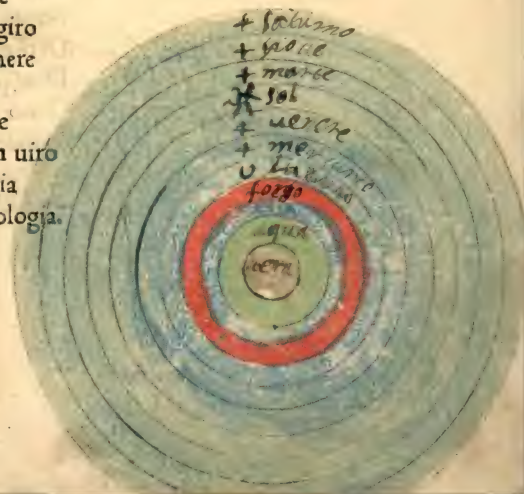 e
giro
nere
e
n uiro
ia
ologia.
+ Saturno
+ gioue
+ marte
sol
+ uenere
+ mercurio
luna
fogo
aqua
terra